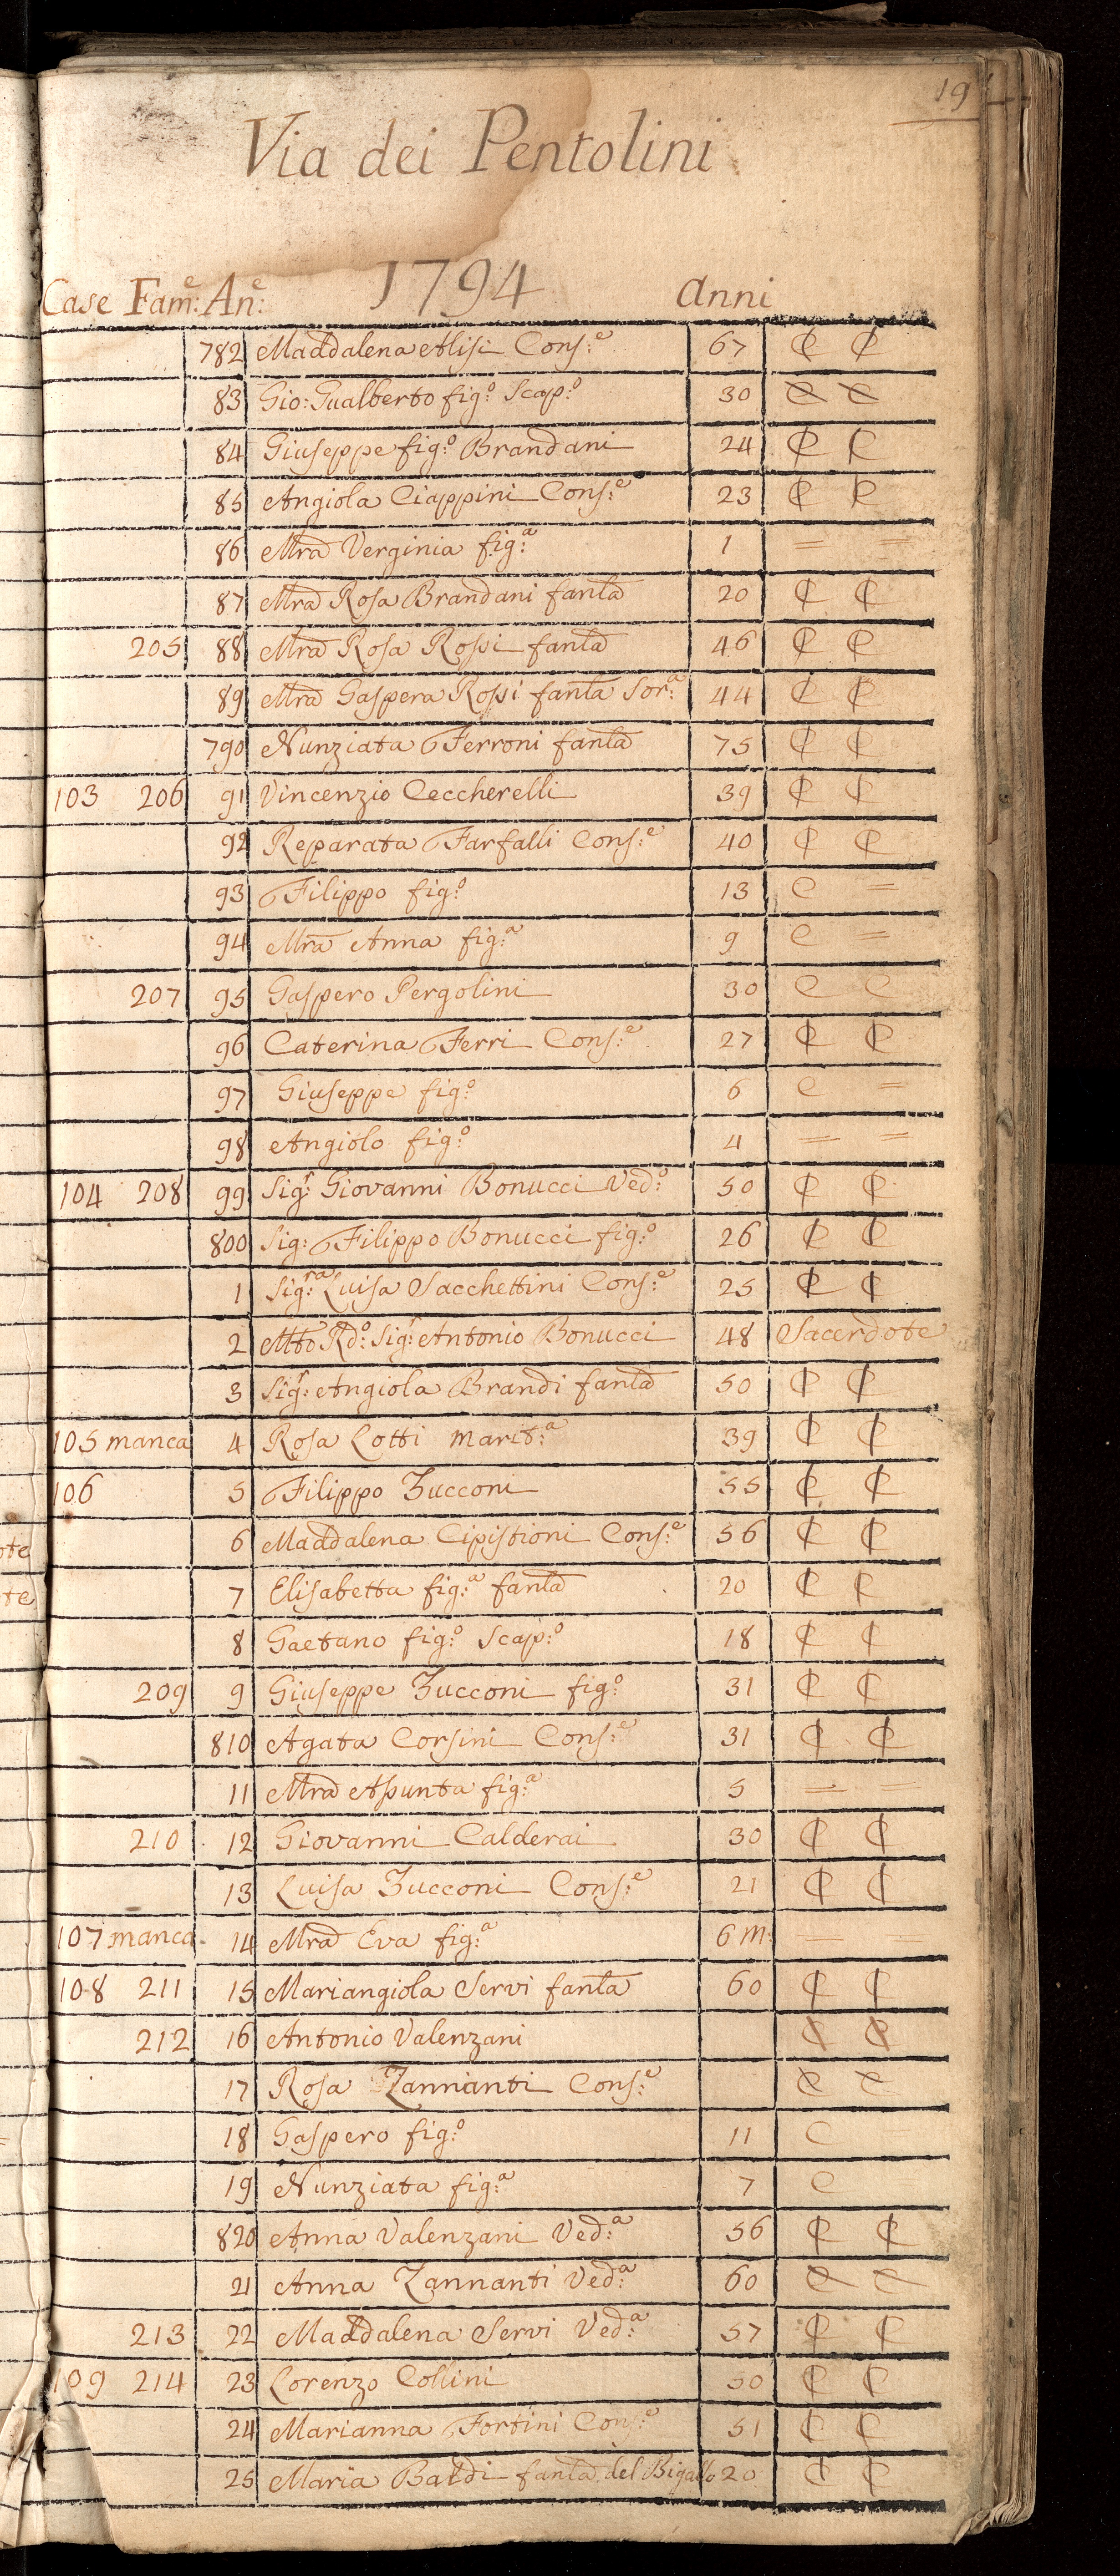 19
Via dei Pentolini
1794
Case Fam:e An:e Anni
782 Maddalena Alisi Cons:e 67 C C
83 Gio: Gualberto fig:o Scap:o 30 C C
84 Giuseppe fig:o Brandani 24 C C
85 Angiola Ciappini Cons:e 23 C C
86 Mra Verginia fig:a 1 = =
87 Mra Rosa Brandani fanta 20 C C
205 88 Mra Rosa Rossi fanta 46 C C
89 Mra Gaspera Rossi fanta Sor:a 44 C C
790 Nunziata Ferroni fanta 75 C C
103 206 91 Vincenzio Ceccherelli 39 C C
92 Reparata Farfalli Cons:e 40 C C
93 Filippo fig:o 13 C =
94 Mra Anna fig:a 9 C =
207 95 Gaspero Pergolini 30 C C
96 Caterina Ferri Cons:e 27 C C
97 Giuseppe fig:o 6 C =
98 Angiolo fig:o 4 = =
104 208 99 Sig:r Giovanni Bonucci Ved:o 50 C C
800 Sig: Filippo Bonucci fig:o 26 C C
1 Sig:ra Luisa Sacchettini Cons:e 25 C C
2 Mto Rdo: Sig:r Antonio Bonucci 48 Sacerdote
3 Sig:r Angiola Brandi fanta 50 C C
105 manca 4 Rosa Lotti Marit:a 39 C C
106 5 Filippo Zucconi 55 C C
6 Maddalena Cipistioni Cons:e 56 C C
7 Elisabetta fig:a fanta 20 C C
8 Gaetano fig:o Scap:o 18 C C
209 9 Giuseppe Zucconi fig:o 31 C C
810 Agata Corsini Cons:e 31 C C
11 Mra Assunta fig:a 5 = =
210 12 Giovanni Calderai 30 C C
13 Luisa Zucconi Cons:e 21 C C
107 manca 14 Mra Eva fig:a 6 m: = =
108 211 15 Mariangiola Servi fanta 60 C C
212 16 Antonio Valenzani C C
17 Rosa Zannanti Cons:e C C
18 Gaspero fig:o 11 C =
19 Nunziata fig:a 7 C
820 Anna Valenzani Ved:a 56 C C
21 Anna Zannanti Ved:a 60 C C
213 22 Maddalena Servi Ved:a 57 C C
109 214 23 Lorenzo Collini 50 C C
24 Marianna Fortini Cons:e 51 C C
25 Maria Baldi fanta del Bigallo 20 C C